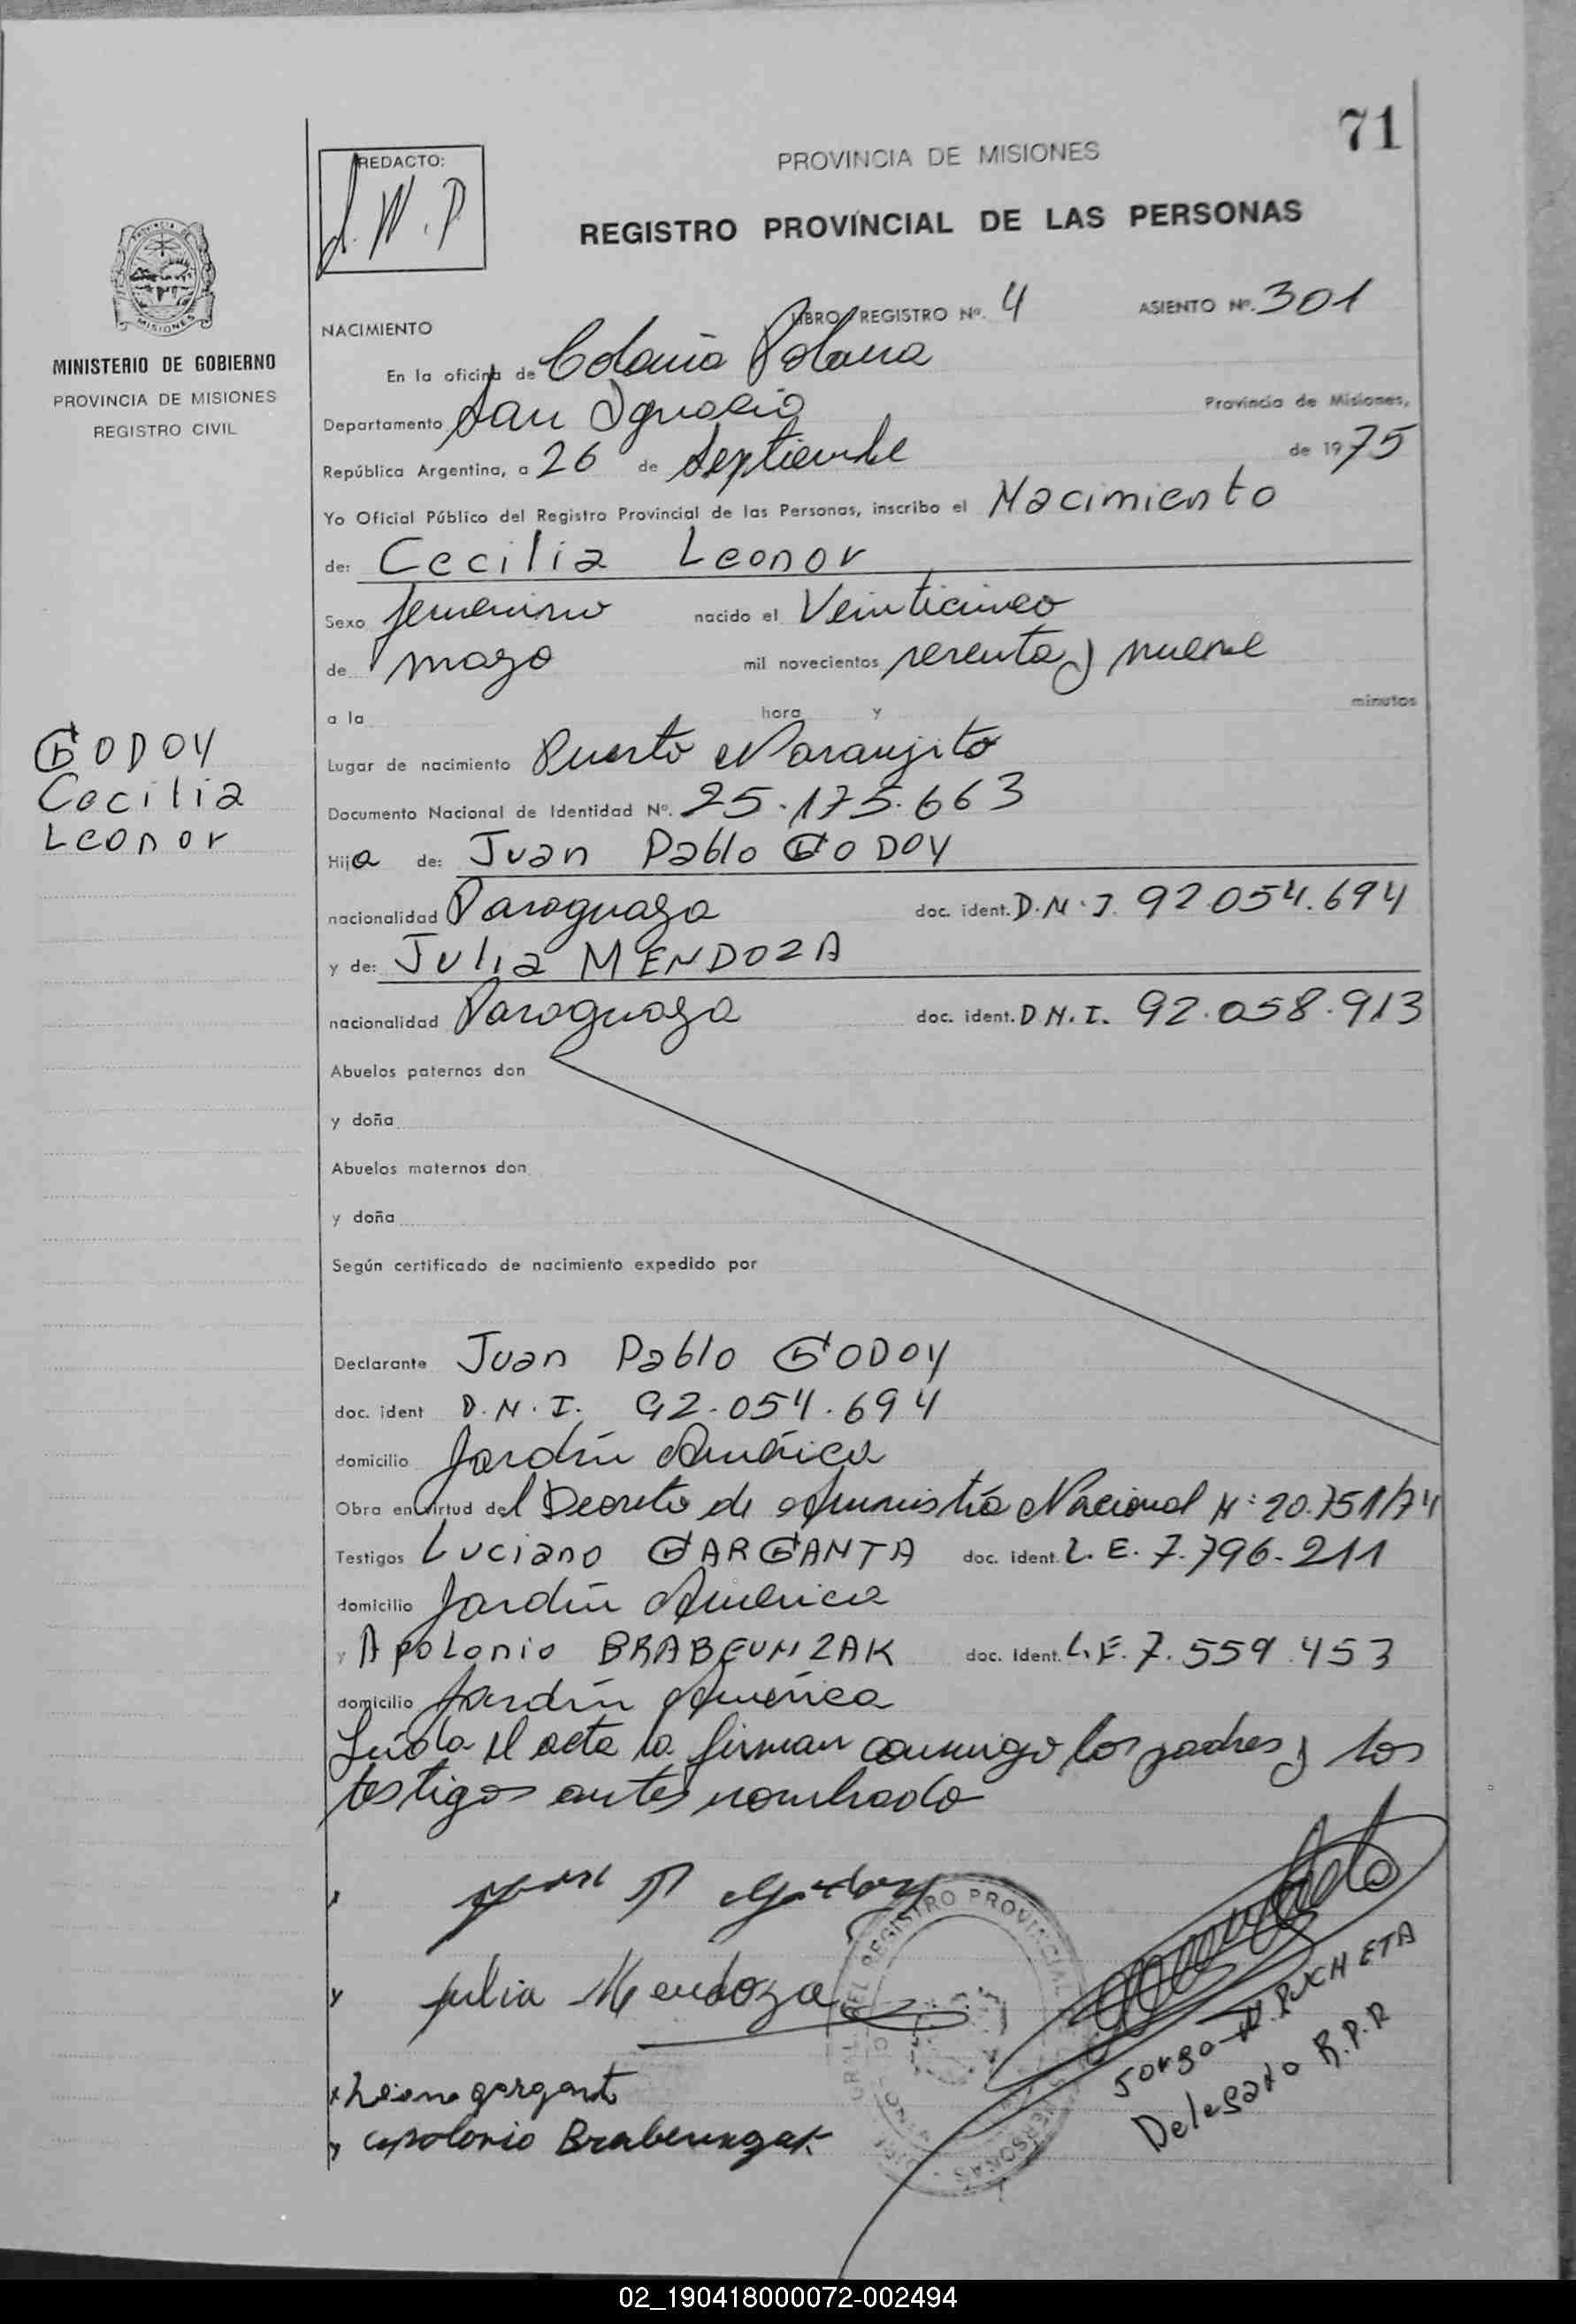 71
REDACTO:
J.W.P
PROVINCIA DE MISIONES
REGISTRO PROVINCIAL DE LAS PERSONAS
MISIONES
MINISTERIO DE GOBIERNO
PROVINCIA DE MISIONES
REGISTRO CIVIL
NACIMIENTO LIBRO REGISTRO Nº. 4 ASIENTO Nº. 301
En la oficina de Colonia Polana
Departamento San Ignacio Provincia de Misiones,
República Argentina, a 26 de Septiembre de 1975
Yo Oficial Público del Registro Provincial de las Personas, inscribo el Nacimiento
de: Cecilia Leonor
Sexo femenino nacido el Veinticinco
de mayo mil novecientos sesenta y nueve
a la hora y minutos
GODOY
Cecilia
Leonor
Lugar de nacimiento Puerto Naranjito
Documento Nacional de Identidad Nº. 25.175.663
Hija de: Juan Pablo GODOY
nacionalidad Paraguaya doc. ident. D.N.I. 92.054.694
y de: Julia MENDOZA
nacionalidad Paraguaya doc. ident. D.N.I. 92.058.913
Abuelos paternos don
y doña
Abuelos maternos don
y doña
Según certificado de nacimiento expedido por
Declarante Juan Pablo GODOY
doc. ident D.N.I. 92.054.694
domicilio Jardín América
Obra en virtud del Decreto de Amnistía Nacional N: 20.751/74
Testigos Luciano GARGANTA doc. ident. L.E. 7.796.211
domicilio Jardín América
y Apolonio BRABEUNZAK doc. Ident. L.E. 7.559.453
domicilio Jardín América
Leída el acta la firman conmigo los padres y los
testigos antes nombrado
Juan P Godoy
Julia Mendoza
apolonio Brabeunzak
REGISTRO PROVINCIAL
PERSONAS
Jorge W. PUCHETA
Delegado R.P.P
02_190418000072-002494